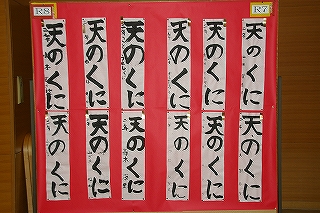 R8
R7
天のくに
天のくに
天のくに
天のくに
天のくに
天のくに
天のくに
天のくに
天のくに
天のくに
天のくに
天のくに